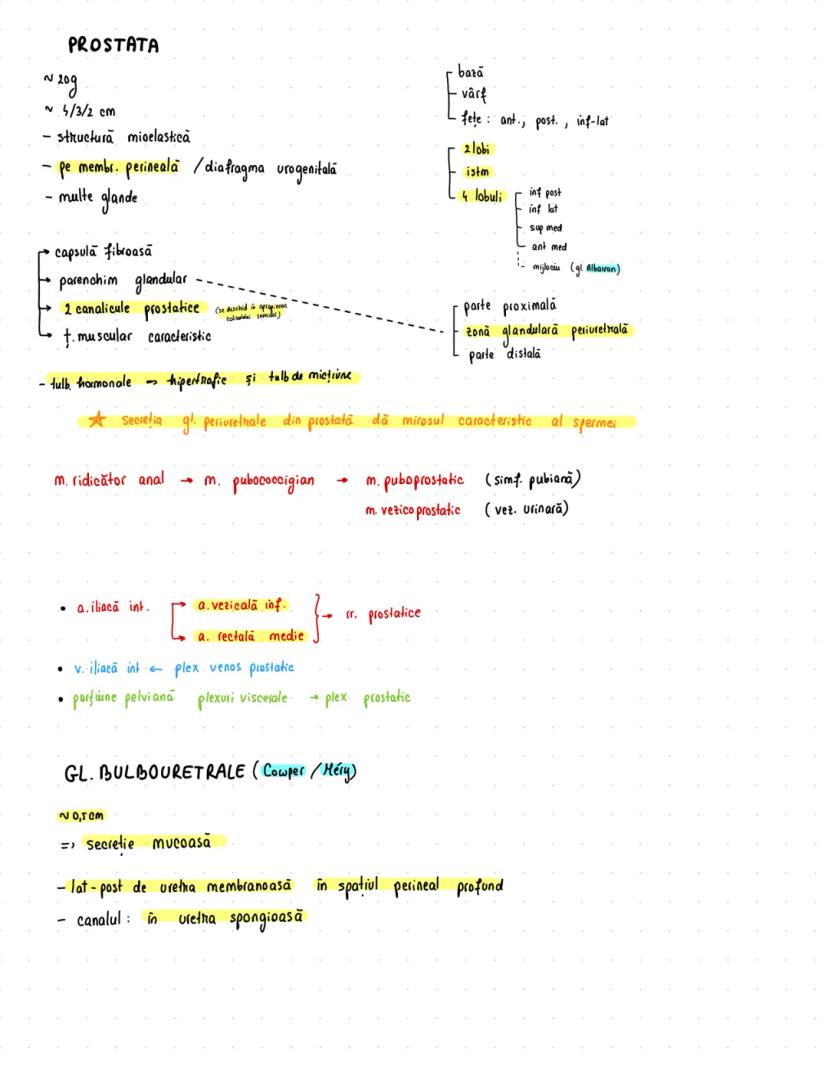 PROSTATA
~ 20g
~ 4/3/2 cm
- structură mioelastică
- pe membr. perineală / diafragma urogenitală
- multe glande
bază
vârf
fețe : ant., post. , inf-lat
2 lobi
istm
4 lobuli
inf post
inf lat
sup med
ant med
mijlociu (gl. Albarran)
capsulă fibroasă
parenchim glandular
2 canalicule prostatice (se deschid în apropierea coliculului seminal)
ț. muscular caracteristic
parte proximală
zonă glandulară periuretrală
parte distală
- tulb. hormonale => hipertrofie și tulb de micțiune
☆ secreția gl. periuretrale din prostată dă mirosul caracteristic al spermei
m. ridicător anal → m. pubococcigian → m. puboprostatic (simf. pubiană)
m. vezicoprostatic (vez. urinară)
• a. iliacă int. → a. vezicală inf. → rr. prostatice
→ a. rectală medie
• v. iliacă int ← plex venos prostatic
• porțiune pelviană plexuri viscerale → plex prostatic
GL. BULBOURETRALE (Cowper / Méry)
~ 0,5 cm
=> secreție mucoasă
- lat-post de uretra membranoasă în spațiul perineal profund
- canalul : în uretra spongioasă